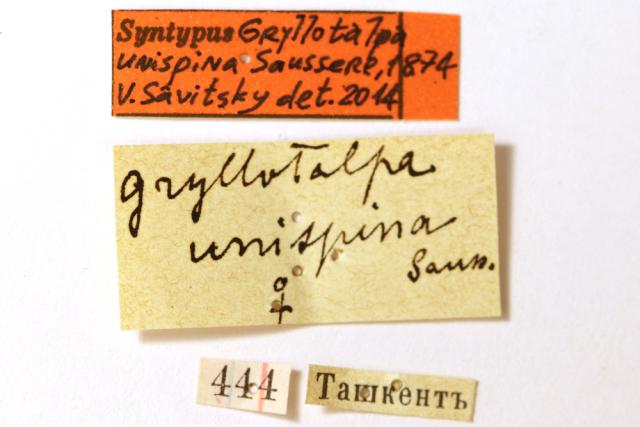 Syntypus Gryllotalpa
unispina Saussere, 1874
V. Savitsky det. 2014
gryllotalpa
unispina
Sauss.
♀
444
Ташкентъ